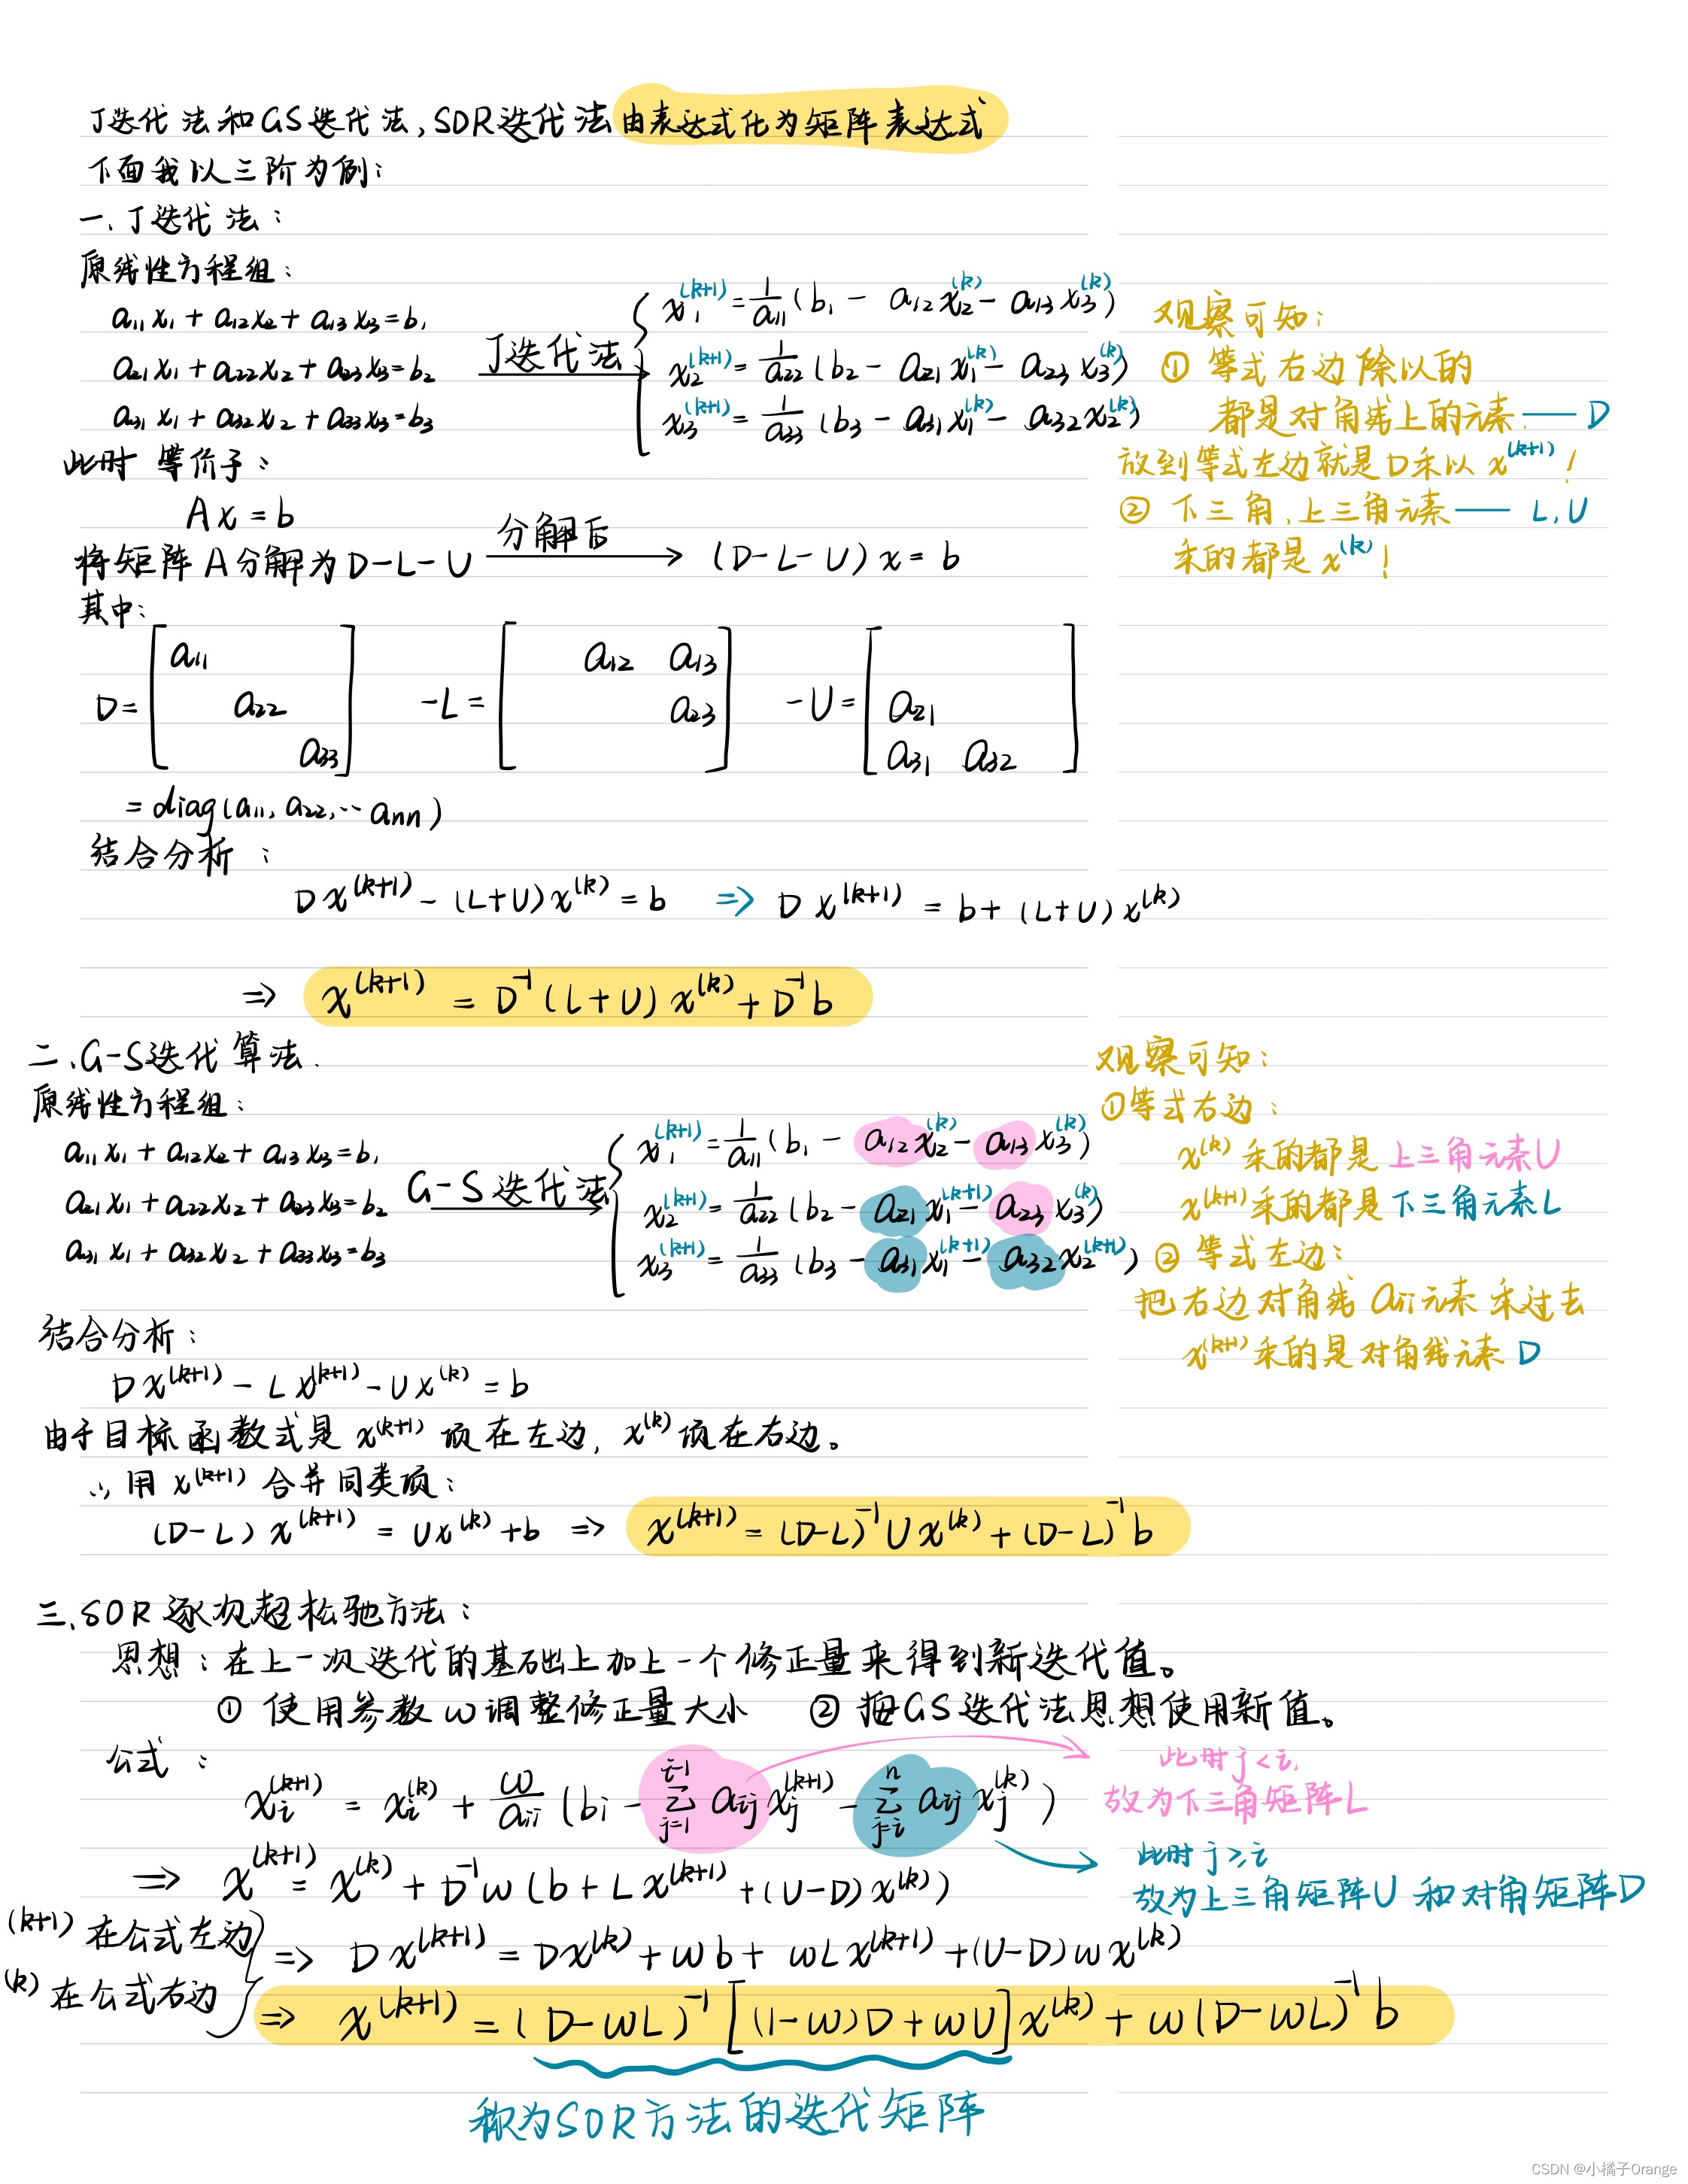 J迭代法和GS迭代法,SOR迭代法由表达式化为矩阵表达式
下面我以三阶为例:
一.J迭代法:
原线性方程组:
a₁₁x₁ + a₁₂x₂ + a₁₃x₃ = b₁
a₂₁x₁ + a₂₂x₂ + a₂₃x₃ = b₂
a₃₁x₁ + a₃₂x₂ + a₃₃x₃ = b₃
J迭代法
x₁^(k+1) = 1/a₁₁ (b₁ - a₁₂x₂^(k) - a₁₃x₃^(k))
x₂^(k+1) = 1/a₂₂ (b₂ - a₂₁x₁^(k) - a₂₃x₃^(k))
x₃^(k+1) = 1/a₃₃ (b₃ - a₃₁x₁^(k) - a₃₂x₂^(k))
观察可知:
① 等式右边除以的
都是对角线上的元素 —— D
放到等式左边就是D乘以 x^(k+1) !
② 下三角,上三角元素 —— L,U
乘的都是 x^(k) !
此时等价于:
Ax = b
将矩阵A分解为D-L-U 分解后 → (D-L-U)x = b
其中:
D = [a₁₁ a₂₂ a₃₃] -L = [a₁₂ a₁₃ a₂₃] -U = [a₂₁ a₃₁ a₃₂]
= diag(a₁₁, a₂₂, ··· aₙₙ)
结合分析:
Dx^(k+1) - (L+U)x^(k) = b ⇒ Dx^(k+1) = b + (L+U)x^(k)
⇒ x^(k+1) = D⁻¹(L+U)x^(k) + D⁻¹b
二.G-S迭代算法.
原线性方程组:
a₁₁x₁ + a₁₂x₂ + a₁₃x₃ = b₁
a₂₁x₁ + a₂₂x₂ + a₂₃x₃ = b₂
a₃₁x₁ + a₃₂x₂ + a₃₃x₃ = b₃
G-S迭代法
x₁^(k+1) = 1/a₁₁ (b₁ - a₁₂x₂^(k) - a₁₃x₃^(k))
x₂^(k+1) = 1/a₂₂ (b₂ - a₂₁x₁^(k+1) - a₂₃x₃^(k))
x₃^(k+1) = 1/a₃₃ (b₃ - a₃₁x₁^(k+1) - a₃₂x₂^(k+1))
观察可知:
①等式右边:
x^(k) 乘的都是上三角元素U
x^(k+1) 乘的都是下三角元素L
② 等式左边:
把右边对角线 aᵢᵢ元素乘过去
x^(k+1) 乘的是对角线元素 D
结合分析:
Dx^(k+1) - Lx^(k+1) - Ux^(k) = b
由于目标函数式是 x^(k+1) 项在左边, x^(k) 项在右边。
∴ 用 x^(k+1) 合并同类项:
(D-L)x^(k+1) = Ux^(k) + b ⇒ x^(k+1) = (D-L)⁻¹Ux^(k) + (D-L)⁻¹b
三.SOR逐次超松弛方法:
思想:在上一次迭代的基础上加上一个修正量来得到新迭代值。
① 使用参数ω调整修正量大小 ② 按GS迭代法思想使用新值。
公式:
xᵢ^(k+1) = xᵢ^(k) + ω/aᵢᵢ (bᵢ - Σ_{j=1}^{i-1} aᵢⱼxⱼ^(k+1) - Σ_{j=i}^{n} aᵢⱼxⱼ^(k))
此时j<i,
故为下三角矩阵L
此时j≥i
故为上三角矩阵U和对角矩阵D
⇒ x^(k+1) = x^(k) + D⁻¹ω(b + Lx^(k+1) + (U-D)x^(k))
(k+1) 在公式左边
(k) 在公式右边
⇒ Dx^(k+1) = Dx^(k) + ωb + ωLx^(k+1) + (U-D)ωx^(k)
⇒ x^(k+1) = (D-ωL)⁻¹[(1-ω)D+ωU]x^(k) + ω(D-ωL)⁻¹b
称为SOR方法的迭代矩阵
CSDN @小橘子Orange